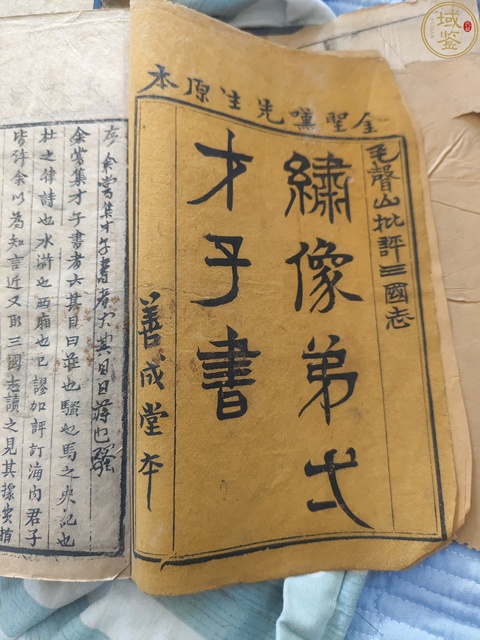 金聖嘆先生原本
毛聲山批評三國志
繡像弟弌
才子書
善成堂本
序余嘗集才子書者六其目曰蔣也騷
余嘗集才子書者六其目曰莊也騷也馬之史記也
杜之律詩也水滸也西廂也已謬加評訂海內君子
皆許余以為知言近又取三國志讀之見其據實指
域鉴